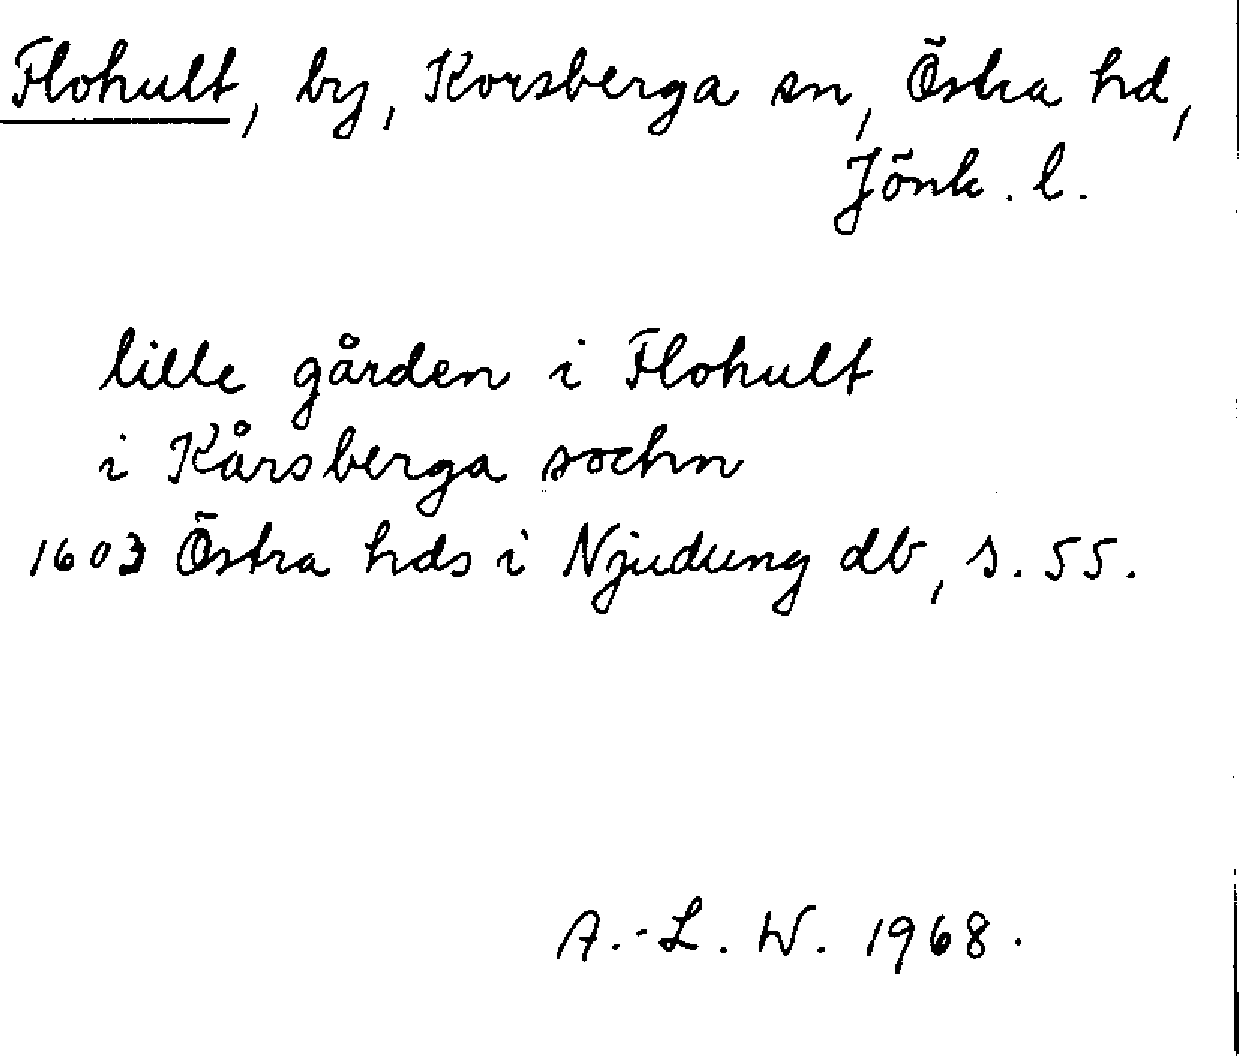 Flohult, by, Korsberga sn, Östra hd,
Jönk. l.
lille gården i Flohult
i Kårsberga sochn
1603 Östra hds i Njudung db, s. 55.
A.-L. W. 1968.